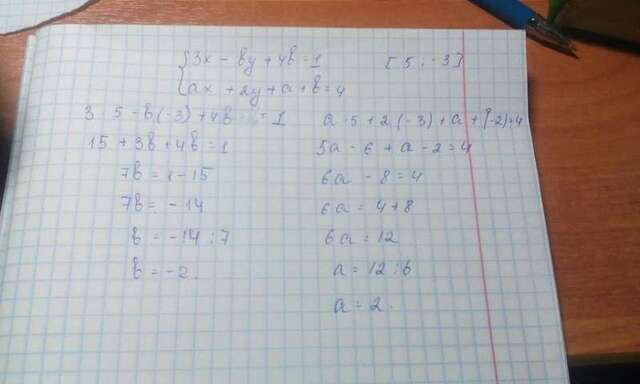 3x - by + 4b = 1 [5; -3]
ax + 2y + a + b = 4
3 · 5 - b(-3) + 4b = 1
15 + 3b + 4b = 1
7b = 1 - 15
7b = -14
b = -14 : 7
b = -2.
a · 5 + 2(-3) + a + (-2) = 4
5a - 6 + a - 2 = 4
6a - 8 = 4
6a = 4 + 8
6a = 12
a = 12 : 6
a = 2.